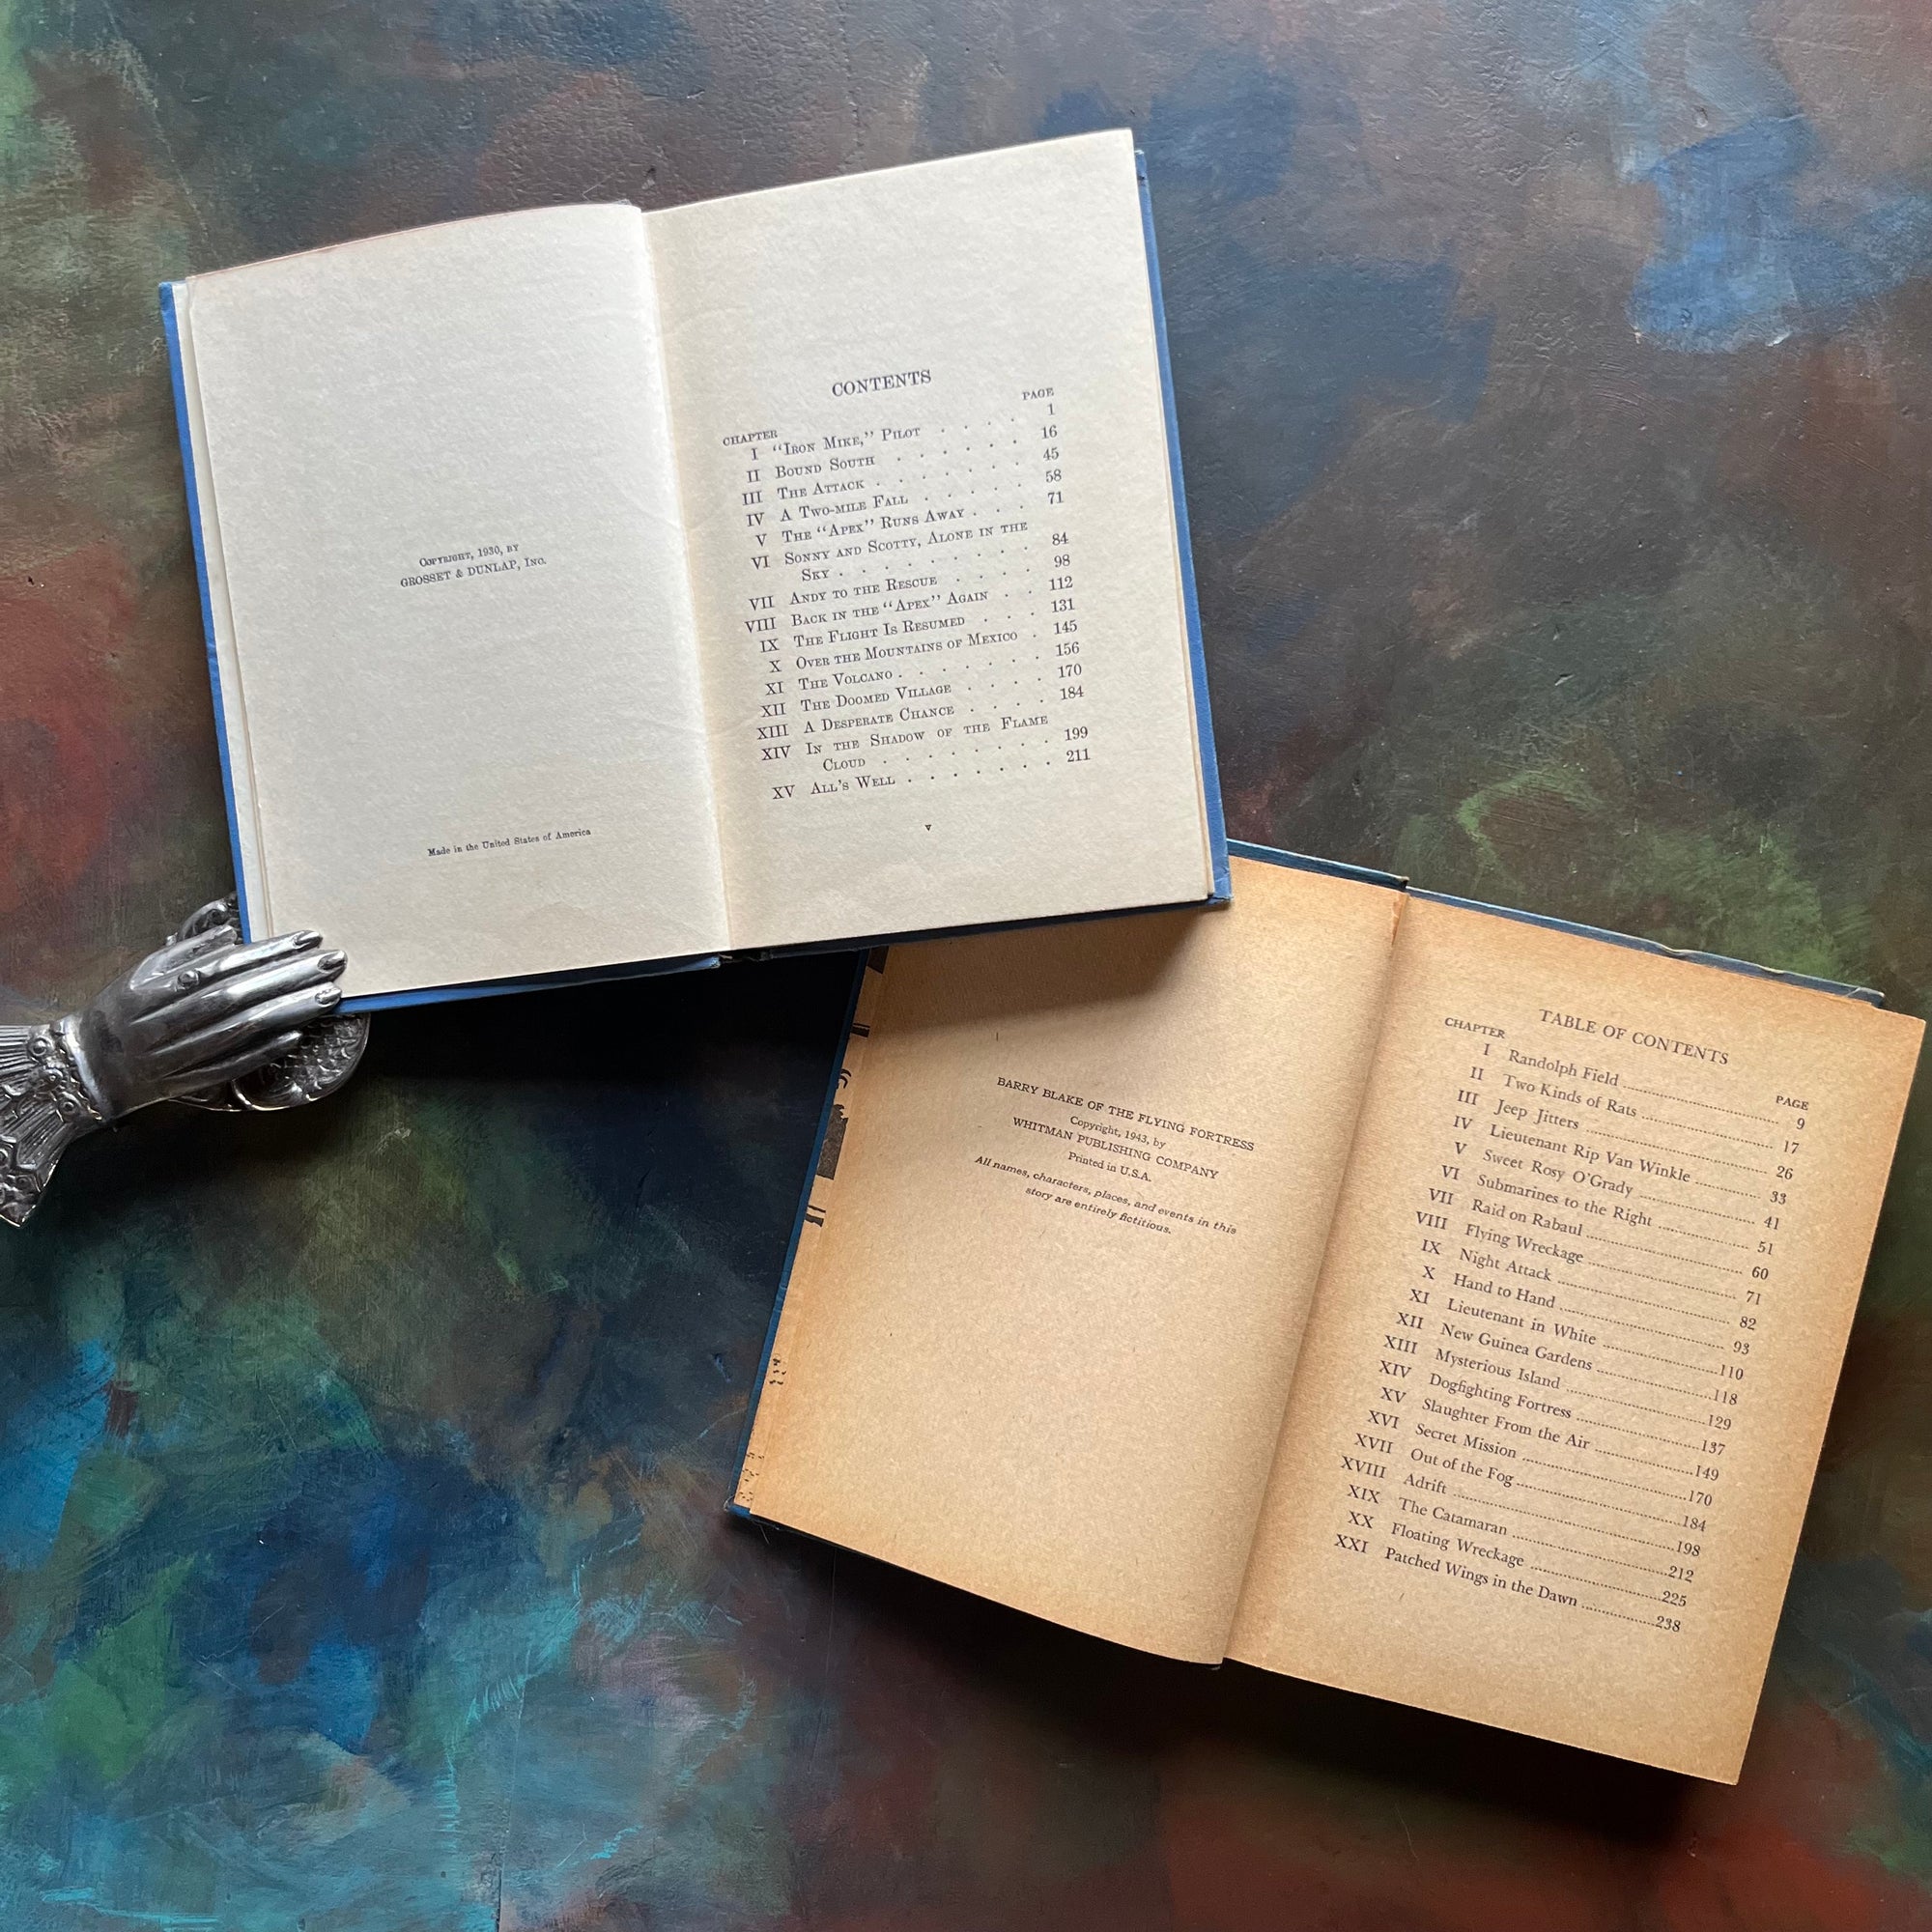 COPYRIGHT, 1930, BY
GROSSET & DUNLAP, INC.
Made in the United States of America
CONTENTS
CHAPTER PAGE
I "IRON MIKE," PILOT . . . . 1
II BOUND SOUTH . . . . . . 16
III THE ATTACK . . . . . . . 45
IV A TWO-MILE FALL . . . . . 58
V THE "APEX" RUNS AWAY . . . 71
VI SONNY AND SCOTTY, ALONE IN THE
SKY . . . . . . . . 84
VII ANDY TO THE RESCUE . . . . 98
VIII BACK IN THE "APEX" AGAIN . . 112
IX THE FLIGHT IS RESUMED . . . 131
X OVER THE MOUNTAINS OF MEXICO . 145
XI THE VOLCANO . . . . . . . 156
XII THE DOOMED VILLAGE . . . . 170
XIII A DESPERATE CHANCE . . . . 184
XIV IN THE SHADOW OF THE FLAME
CLOUD . . . . . . . . 199
XV ALL'S WELL . . . . . . . 211
v
BARRY BLAKE OF THE FLYING FORTRESS
Copyright, 1943, by
WHITMAN PUBLISHING COMPANY
Printed in U.S.A.
All names, characters, places, and events in this
story are entirely fictitious.
TABLE OF CONTENTS
CHAPTER PAGE
I Randolph Field 9
II Two Kinds of Rats 17
III Jeep Jitters 26
IV Lieutenant Rip Van Winkle 33
V Sweet Rosy O'Grady 41
VI Submarines to the Right 51
VII Raid on Rabaul 60
VIII Flying Wreckage 71
IX Night Attack 82
X Hand to Hand 93
XI Lieutenant in White 110
XII New Guinea Gardens 118
XIII Mysterious Island 129
XIV Dogfighting Fortress 137
XV Slaughter From the Air 149
XVI Secret Mission 170
XVII Out of the Fog 184
XVIII Adrift 198
XIX The Catamaran 212
XX Floating Wreckage 225
XXI Patched Wings in the Dawn 238